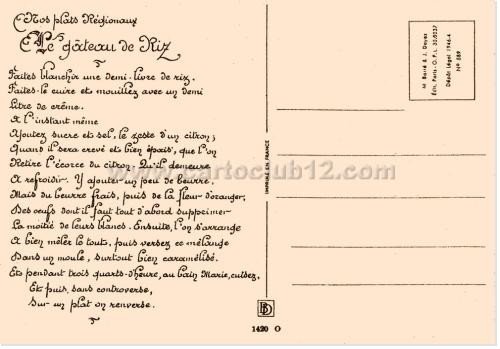 Nos plats Régionaux
Le gâteau de Riz
Faites blanchir une demi-livre de riz,
Faites-le cuire et mouillez avec un demi
Litre de crême.
A l'instant même
Ajoutez sucre et sel, le zeste d'un citron;
Quand il sera crevé et bien épais, que l'on
Retire l'écorce du citron. Qu'il demeure
A refroidir. Y ajouter un peu de beurre,
Mais du beurre frais, puis de la fleur d'oranger,
Des oeufs dont il faut tout d'abord supprimer
La moitié de leurs blancs. Ensuite, l'on s'arrange
A bien mêler le tout, puis versez ce mélange
Dans un moule, surtout bien caramélisé.
Ets pendant trois quarts-d'heure, au bain Marie, cuisez,
Ets puis, sans controverse,
Sur un plat on renverse.
www.cartoclub12.com
IMPRIMÉ EN FRANCE
M. Barré & J. Dayez
Édit, Paris - O.P.L. 30.0037
Dépôt Légal 1946-4
N° 589
BD
1420 O